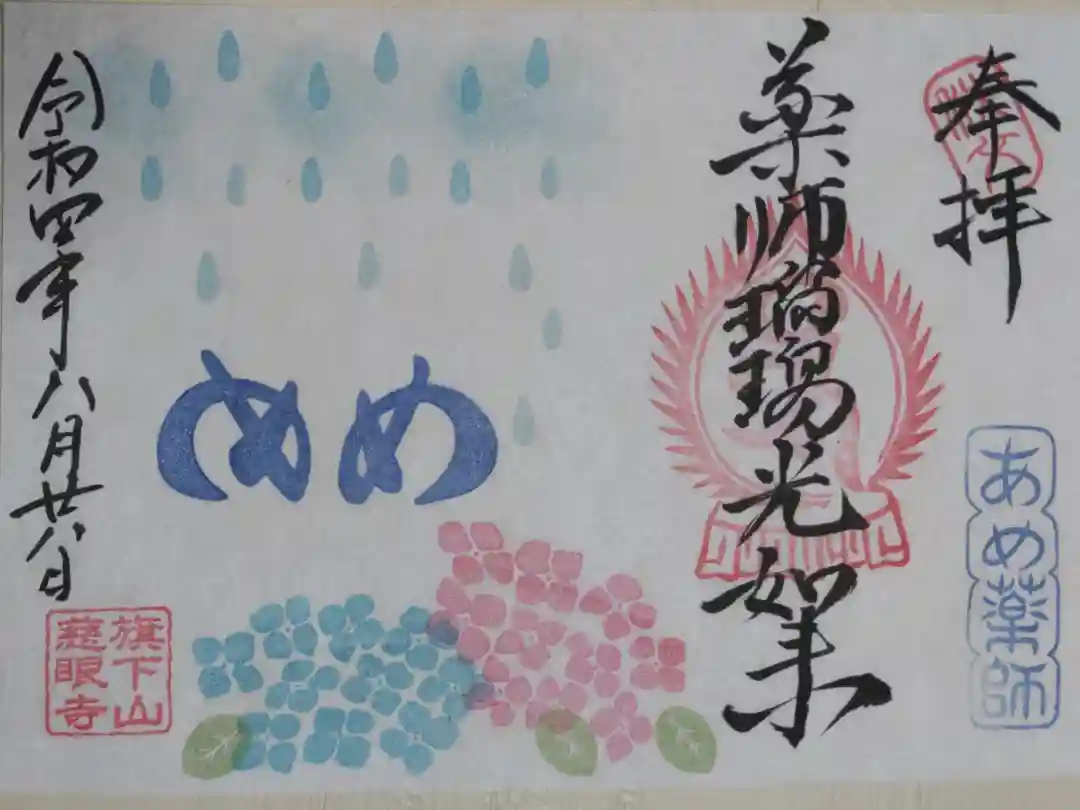 奉拝
あめ薬師
薬師瑠璃光如来
めめ
令和四年八月廿八日
旗下山
慈眼寺